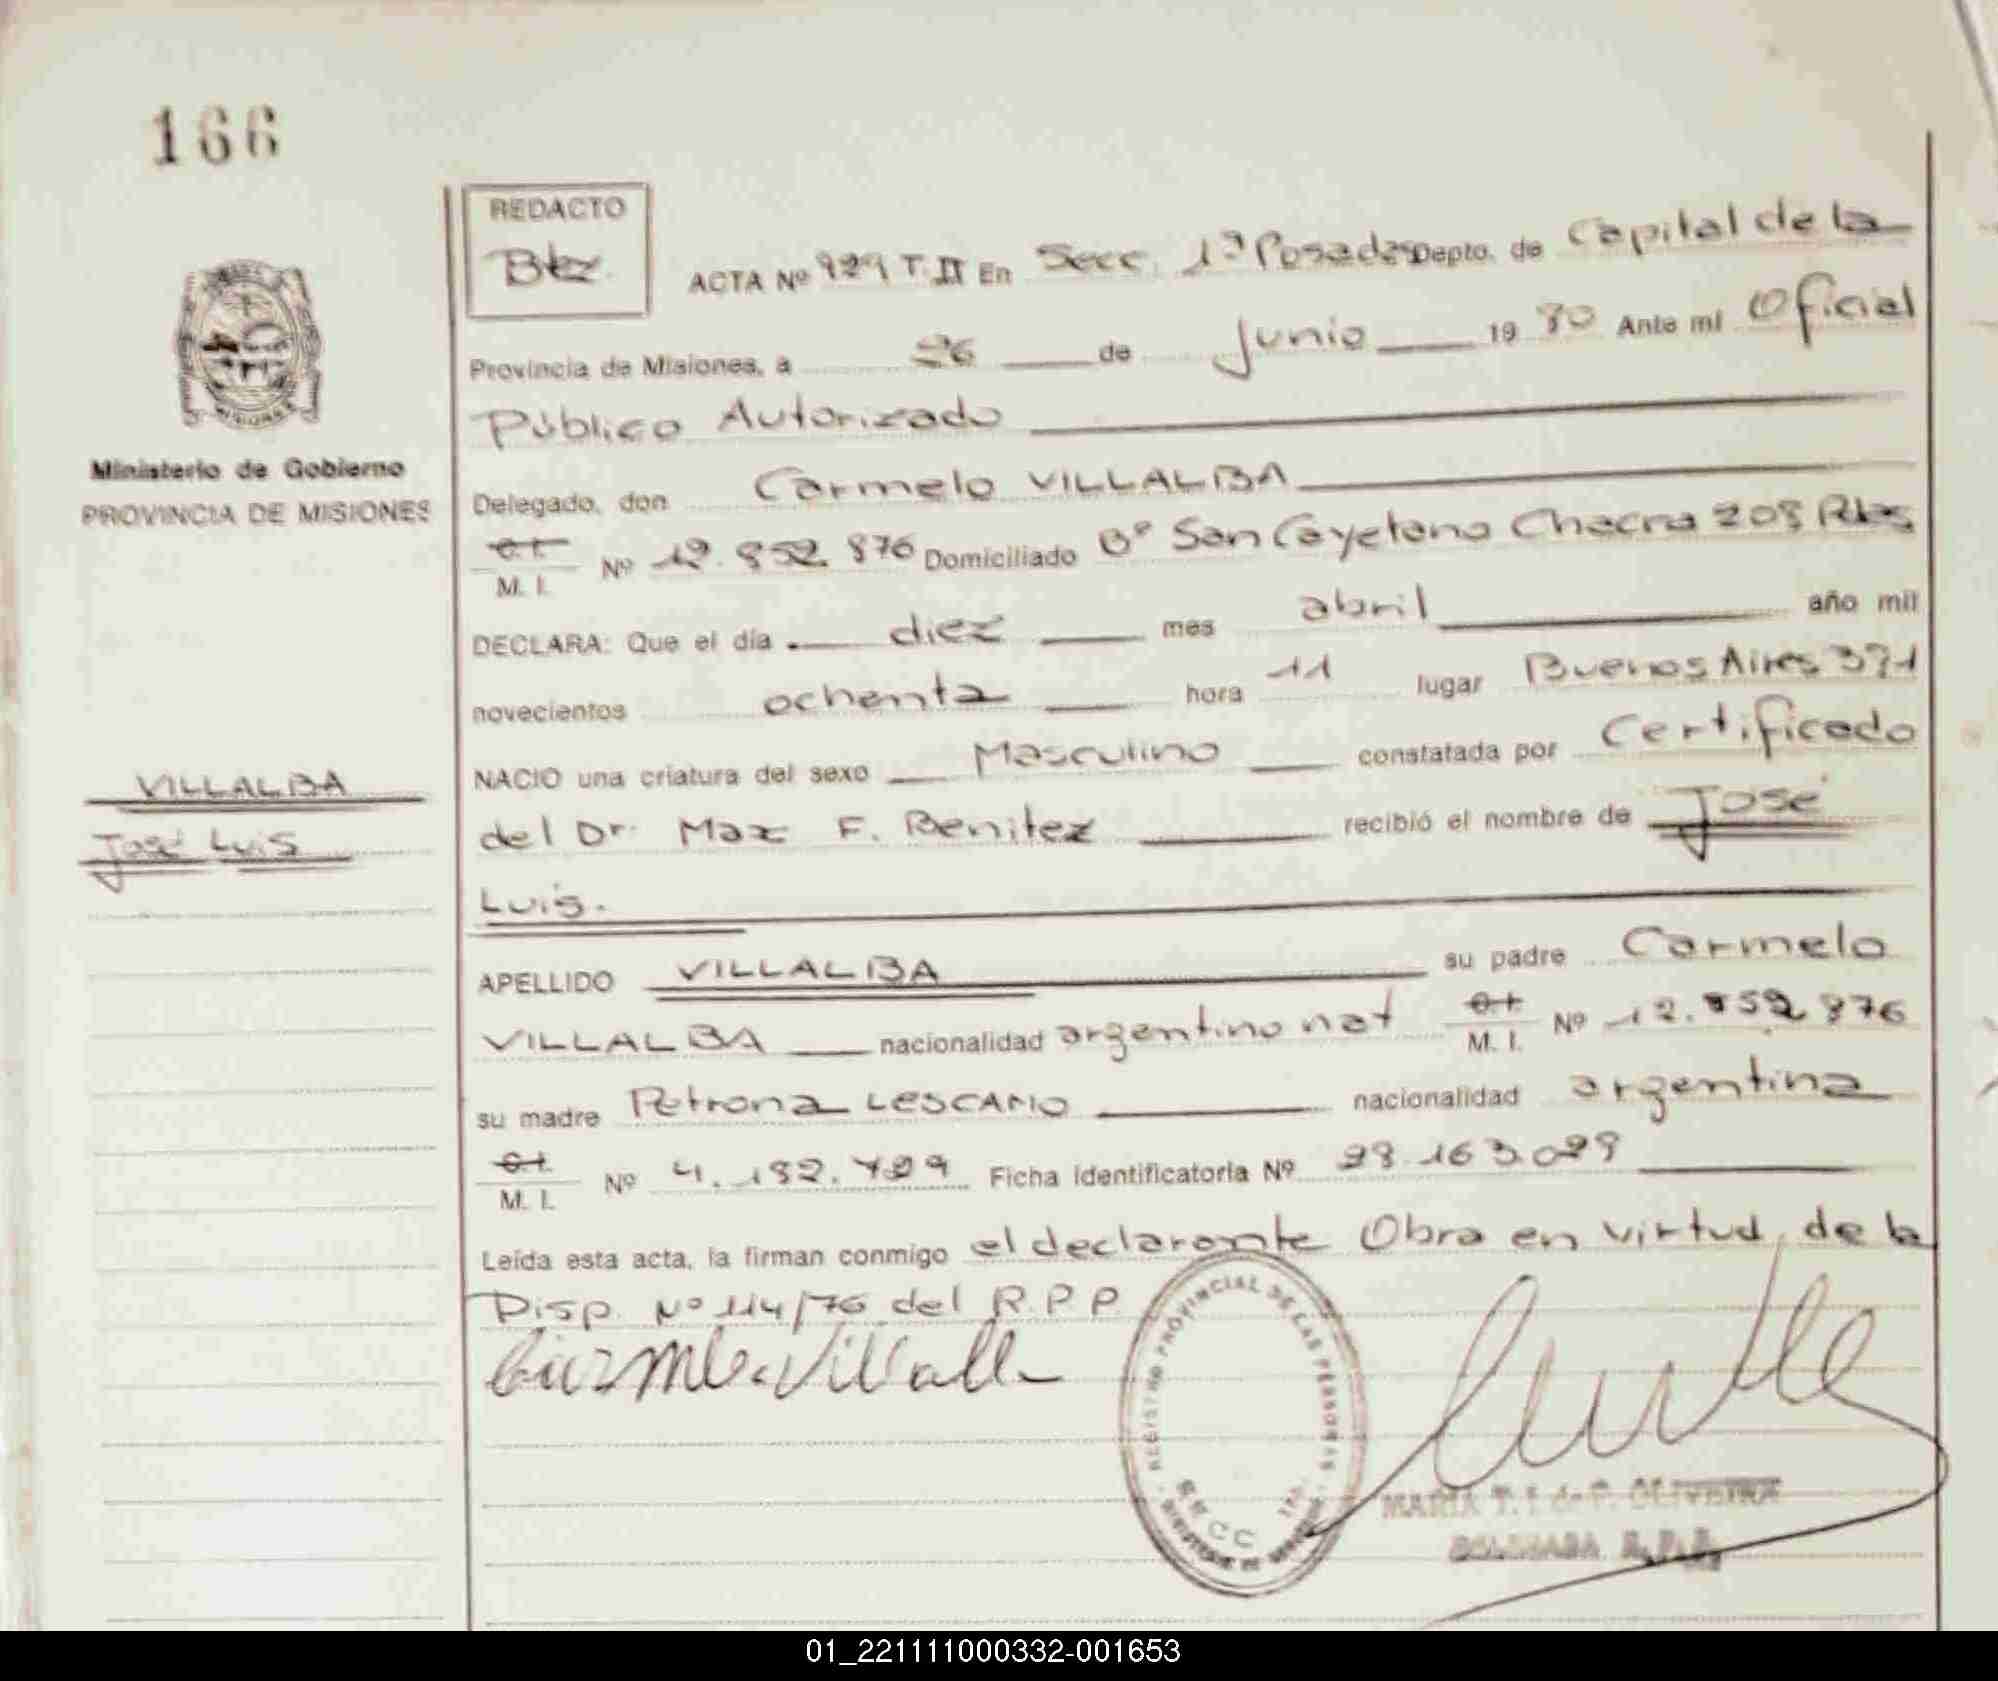 166
REDACTO
Btz.
ACTA Nº 929 T. II En Secc. 1ª Posadas Depto. de Capital de la
Provincia de Misiones, a 26 de Junio 19 80 Ante mí Oficial
Público Autorizado
Ministerio de Gobierno
PROVINCIA DE MISIONES
Delegado, don Carmelo VILLALBA
M. I. Nº 12.852.876 Domiciliado Bº San Cayetano Chacra 208 Pdas
DECLARA: Que el día diez mes abril año mil
novecientos ochenta hora 11 lugar Buenos Aires 371
NACIO una criatura del sexo Masculino constatada por Certificado
VILLALBA
José Luis
del Dr. Max F. Benitez recibió el nombre de José
Luis.
APELLIDO VILLALBA su padre Carmelo
VILLALBA nacionalidad argentino nat M. I. Nº 12.852.876
su madre Petrona LESCANO nacionalidad argentina
M. I. Nº 4.182.799 Ficha identificatoria Nº 28.163.088
Leída esta acta, la firman conmigo el declarante Obra en virtud de la
Disp. Nº 114/76 del R.P.P
REGISTRO PROVINCIAL DE LAS PERSONAS
MARIA T. F. de P. OLIVEIRA
01_221111000332-001653